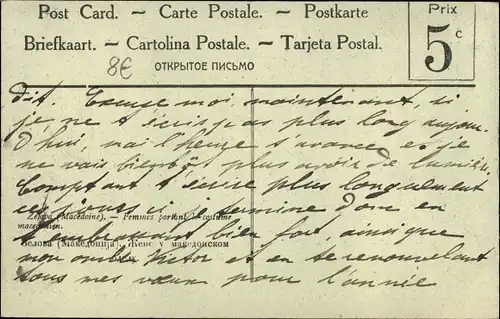 Post Card. – Carte Postale. – Postkarte
Briefkaart. – Cartolina Postale. – Tarjeta Postal.
ОТКРЫТОЕ ПИСЬМО
Prix
5 c
8€
dit. Excuse moi, maintenant, si
je ne t'écris pas plus long aujour-
d'hui, mais l'heure s'avance et je
ne vais bientôt plus avoir de lumière.
Comptant t'écrire plus longuement
ces jours-ci je termine donc en
t'embrassant bien fort, ainsi que
mon Victor et en te renouvelant
tous mes vœux pour l'année
(Macedoine). – Femmes portant le costume
macedonien.
(Македонија). Жене у македонском